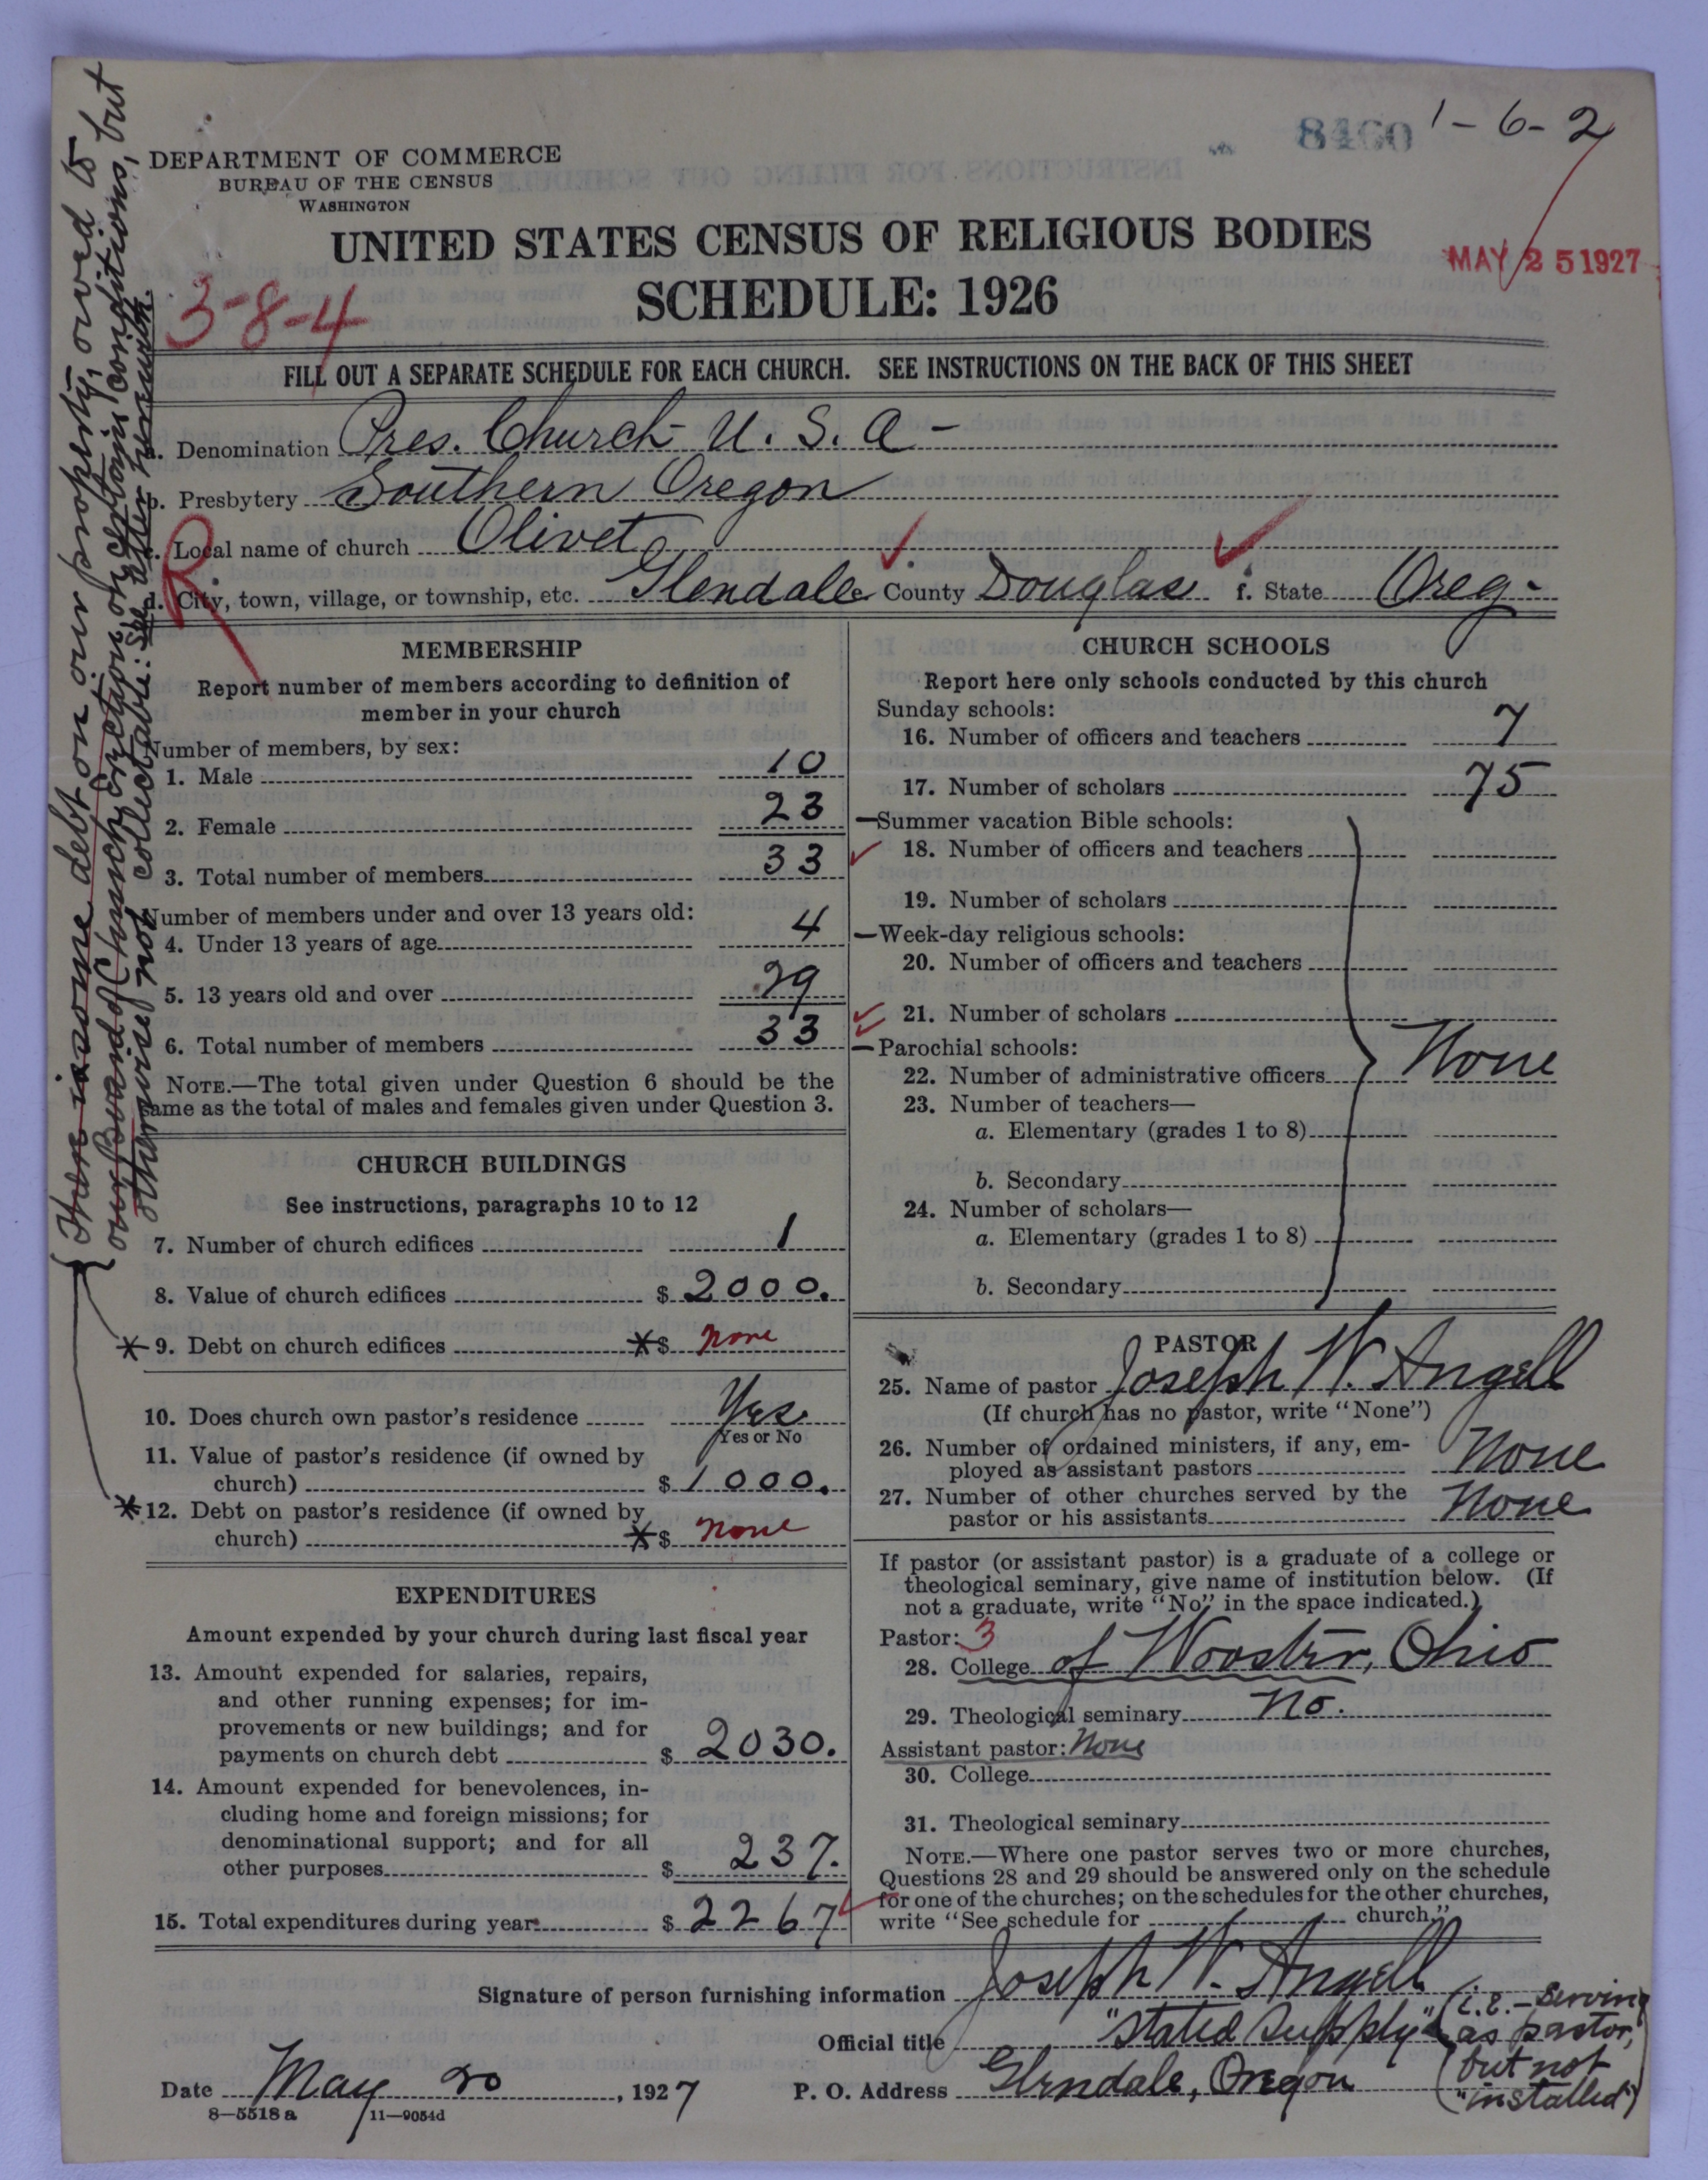 8460 1-6-2
DEPARTMENT OF COMMERCE
BUREAU OF THE CENSUS
WASHINGTON
UNITED STATES CENSUS OF RELIGIOUS BODIES
SCHEDULE: 1926
MAY 25 1927
3-8-4
FILL OUT A SEPARATE SCHEDULE FOR EACH CHURCH. SEE INSTRUCTIONS ON THE BACK OF THIS SHEET
a. Denomination Pres. Church U. S. A -
b. Presbytery Southern Oregon
Local name of church Olivet
R
d. City, town, village, or township, etc. Glendale e. County Douglas f. State Oreg-
There is some debt on our property, owed to
our Board of Church Erection on certain conditions, but
otherwise not collectable: See letter herewith.
MEMBERSHIP
Report number of members according to definition of
member in your church
Number of members, by sex:
1. Male 10
2. Female 23
3. Total number of members 33
Number of members under and over 13 years old:
4. Under 13 years of age 4
5. 13 years old and over 29
6. Total number of members 33
NOTE.—The total given under Question 6 should be the
same as the total of males and females given under Question 3.
CHURCH BUILDINGS
See instructions, paragraphs 10 to 12
7. Number of church edifices 1
8. Value of church edifices $ 2000.
* 9. Debt on church edifices *$ none
10. Does church own pastor's residence Yes
Yes or No
11. Value of pastor's residence (if owned by
church) $ 1000.
* 12. Debt on pastor's residence (if owned by
church) *$ none
EXPENDITURES
Amount expended by your church during last fiscal year
13. Amount expended for salaries, repairs,
and other running expenses; for im-
provements or new buildings; and for
payments on church debt $ 2030.
14. Amount expended for benevolences, in-
cluding home and foreign missions; for
denominational support; and for all
other purposes $ 237.
15. Total expenditures during year $ 2267
CHURCH SCHOOLS
Report here only schools conducted by this church
Sunday schools:
16. Number of officers and teachers 7
17. Number of scholars 75
—Summer vacation Bible schools:
18. Number of officers and teachers
19. Number of scholars
—Week-day religious schools:
20. Number of officers and teachers
21. Number of scholars
—Parochial schools:
None
22. Number of administrative officers
23. Number of teachers—
a. Elementary (grades 1 to 8)
b. Secondary
24. Number of scholars—
a. Elementary (grades 1 to 8)
b. Secondary
PASTOR
25. Name of pastor Joseph W. Angell
(If church has no pastor, write "None")
26. Number of ordained ministers, if any, em-
ployed as assistant pastors None
27. Number of other churches served by the
pastor or his assistants None
If pastor (or assistant pastor) is a graduate of a college or
theological seminary, give name of institution below. (If
not a graduate, write "No" in the space indicated.)
Pastor: 3
28. College of Wooster, Ohio
29. Theological seminary No.
Assistant pastor: None
30. College
31. Theological seminary
NOTE.—Where one pastor serves two or more churches,
Questions 28 and 29 should be answered only on the schedule
for one of the churches; on the schedules for the other churches,
write "See schedule for church."
Signature of person furnishing information Joseph W. Angell
Official title "Stated Supply" (i.e.- Serving
as pastor,
but not
"installed")
Date May 20, 1927 P. O. Address Glendale, Oregon
8—5518 a 11—9054d